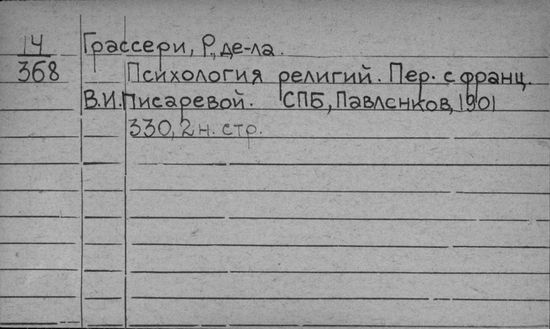 14 Грассери, Р. де-ла.
368 Психология религий. Пер. с франц.
В.И. Писаревой. СПБ, Павленков, 1901
330, 2 н. стр.